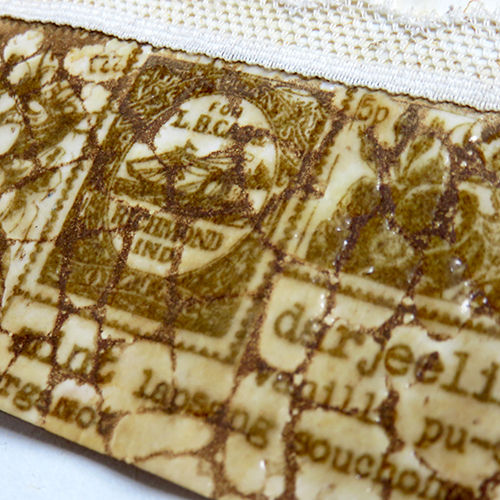 FOR
L.B.C.
RICHMOND
IND
5p
darjeeli
vanilla pu-
lapsang souchong